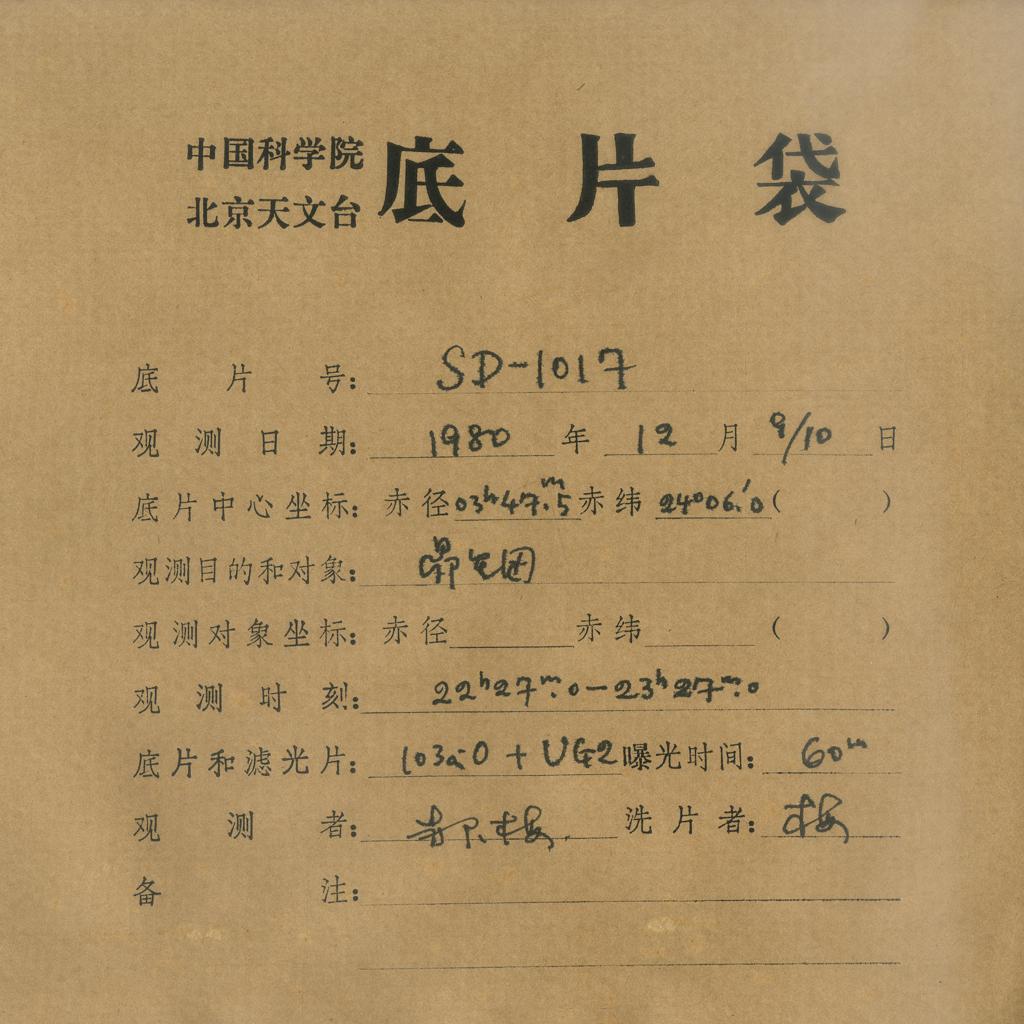 中国科学院
北京天文台
底片袋
底片号: SD-1017
观测日期: 1980 年 12 月 9/10 日
底片中心坐标: 赤径 03ʰ47ᵐ.5 赤纬 24°06.′0 ( )
观测目的和对象: 昴星团
观测对象坐标: 赤径 赤纬 ( )
观测时刻: 22ʰ27ᵐ.0-23ʰ27ᵐ.0
底片和滤光片: 103a-O + UG2 曝光时间: 60ᵐ
观测者: 洗片者: 梅
备注: